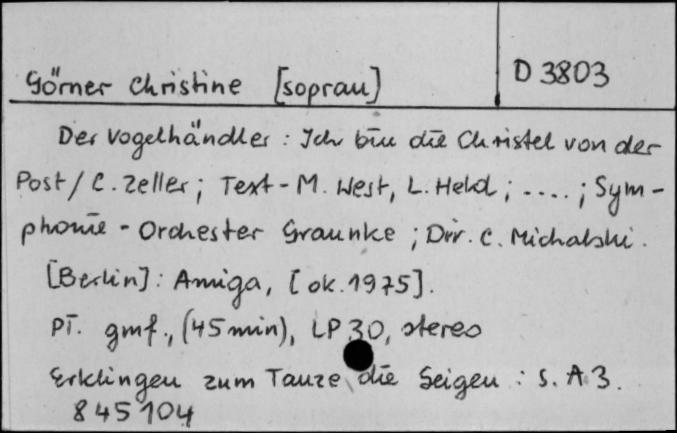 Görner Christine [sopran]
D 3803
Der Vogelhändler : Ich bin die Christel von der
Post / C. Zeller ; Text - M. West, L. Held ; .... ; Sym-
phonie - Orchester Graunke ; Dir. C. Michalski.
[Berlin] : Amiga, [ok. 1975].
Pł. gmf., (45 min), LP 30, stereo
Erklingen zum Tanze die Geigen : s. A 3.
845 104